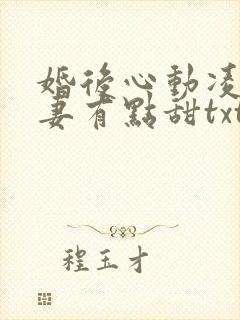 婚後心動凌
妻有點甜txt
程玉才